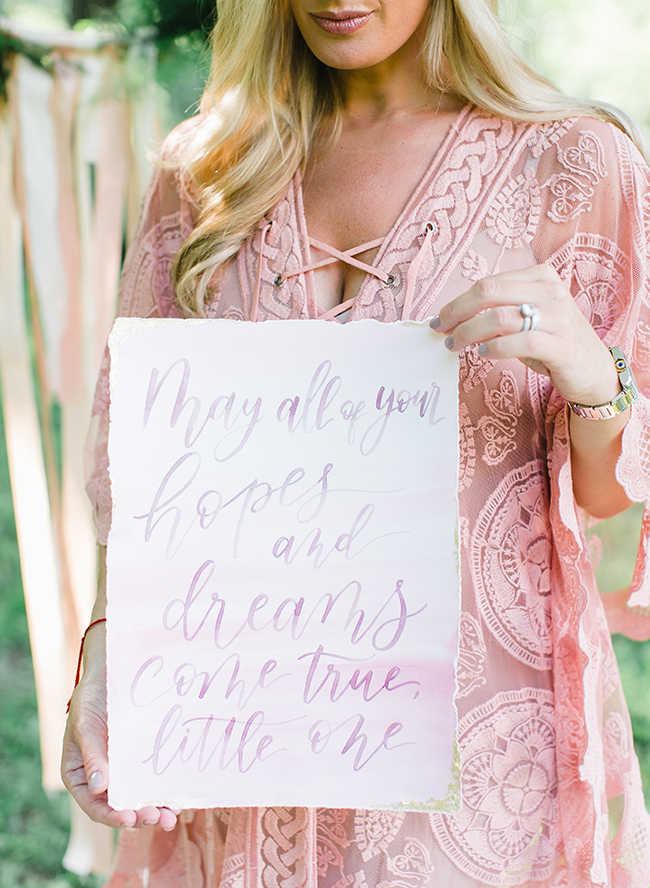 May all of your
hopes
and
dreams
come true,
little one